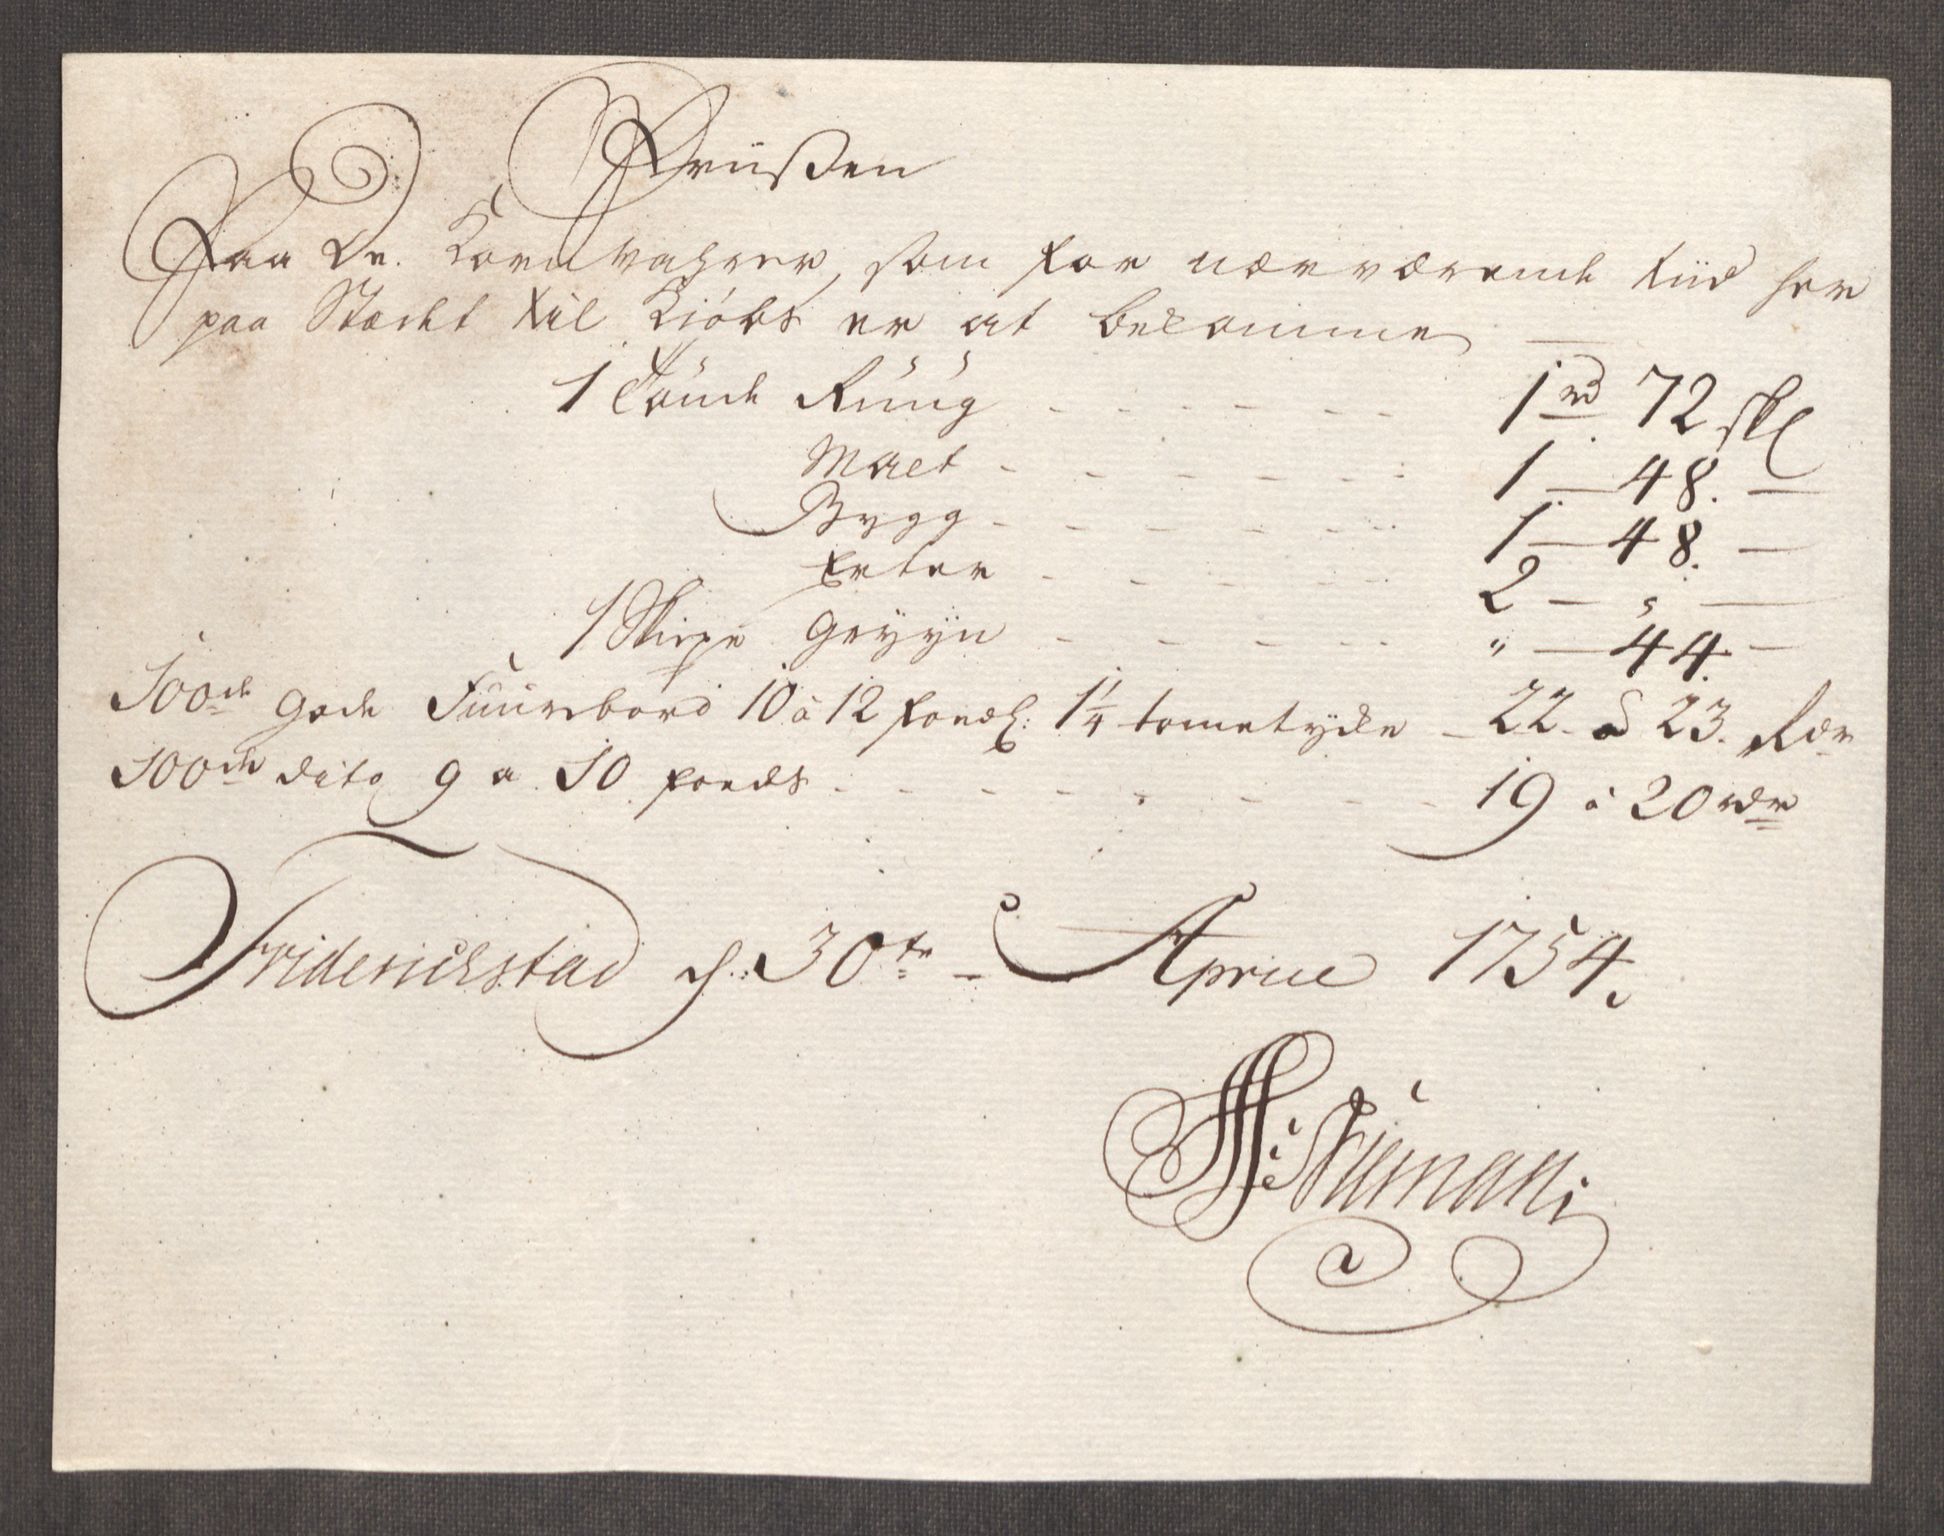 Priisen
Paa De. Kornvahrer, som for nærværende tiid her
paa Stædet til Kiøbs er at bekomme
1 Tønde Ruug - - - - - 1 rd 72 skl
Malt - - - - - 1 — 48. —
Bygg - - - - - 1 — 48. —
Erter - - - - - 2 — " —
1 Skiepe Gryyn - - - - - " — 44. —
100de gode Fuurebord 10 a 12 fods: 1 1/4 tometycke - 22 a 23. Rdr
100de dito 9 a 10 fods - - - - - 19 a 20 rdr
Friderichstad d: 30te Aprill 1754.